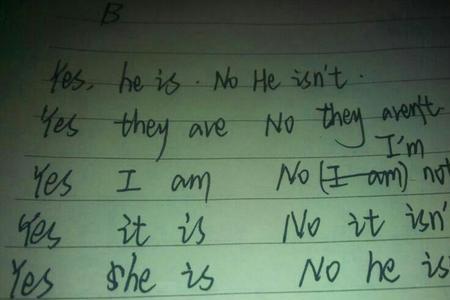 B
Yes, he is. No He isn't.
Yes they are No they aren't.
I'm
Yes I am No (I am) not
Yes it is No it isn'
Yes she is No he is